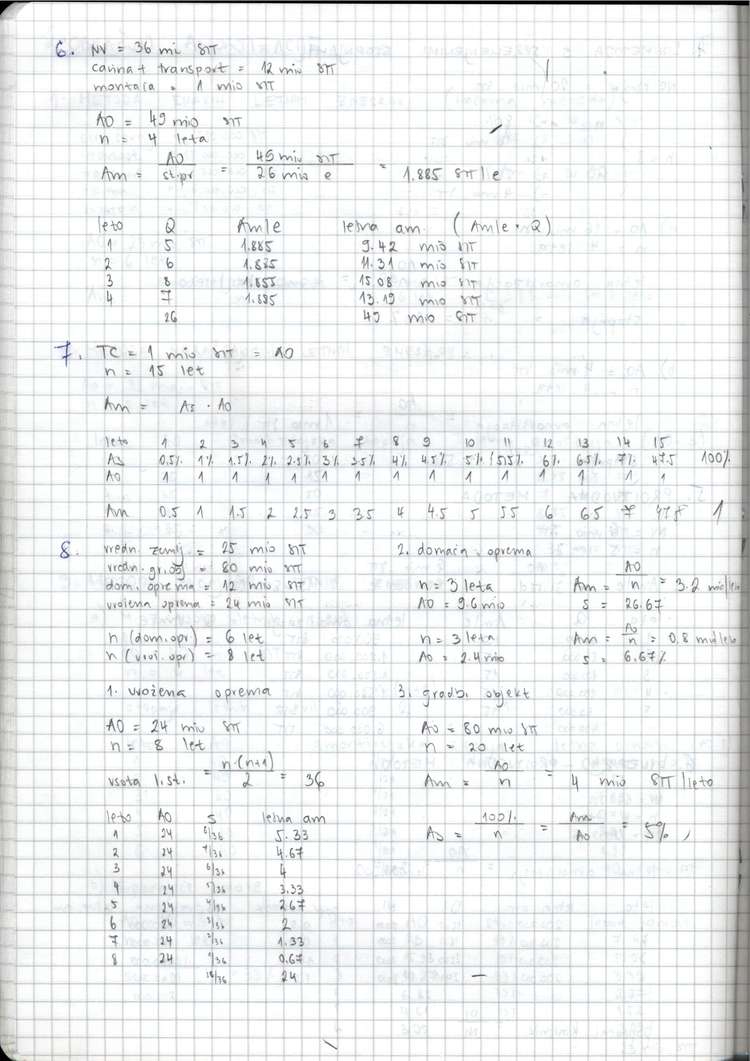 6. NV = 36 mi SIT
carina + transport = 12 mio SIT
montaža = 1 mio SIT
AO = 49 mio SIT
n = 4 leta
Am = AO / št.pr = 45 mio SIT / 26 mio e = 1.885 SIT/e
leto Q Am/e letna am. (Am/e · Q)
1 5 1.885 9.42 mio SIT
2 6 1.885 11.31 mio SIT
3 8 1.885 15.08 mio SIT
4 7 1.885 13.19 mio SIT
26 49 mio SIT
7. TC = 1 mio SIT = AO
n = 15 let
Am = As · AO
leto 1 2 3 4 5 6 7 8 9 10 11 12 13 14 15
As 0.5% 1% 1.5% 2% 2.5% 3% 3.5% 4% 4.5% 5% 5.5% 6% 6.5% 7% 47.5 100%
AO 1 1 1 1 1 1 1 1 1 1 1 1 1 1 1
Am 0.5 1 1.5 2 2.5 3 3.5 4 4.5 5 55 6 65 7 475 1
8. vredn. zemlj. = 25 mio SIT
vredn. gr. obj = 80 mio SIT
dom. oprema = 12 mio SIT
uvožena oprema = 24 mio SIT
n (dom. opr) = 6 let
n (uvož. opr) = 8 let
1. uvožena oprema
AO = 24 mio SIT
n = 8 let
vsota l.st. = n·(n+1) / 2 = 36
leto AO S letna am
1 24 8/36 5.33
2 24 7/36 4.67
3 24 6/36 4
4 24 5/36 3.33
5 24 4/36 2.67
6 24 3/36 2
7 24 2/36 1.33
8 24 1/36 0.67
24
2. domača oprema
n = 3 leta Am = AO / n = 3.2 mio/leto
AO = 9.6 mio S = 26.67
n = 3 leta Am = AO / n = 0.8 mio/leto
AO = 2.4 mio S = 6.67%
3. gradb. objekt
AO = 80 mio SIT
n = 20 let
Am = AO / n = 4 mio SIT/leto
As = 100% / n = Am / AO = 5%